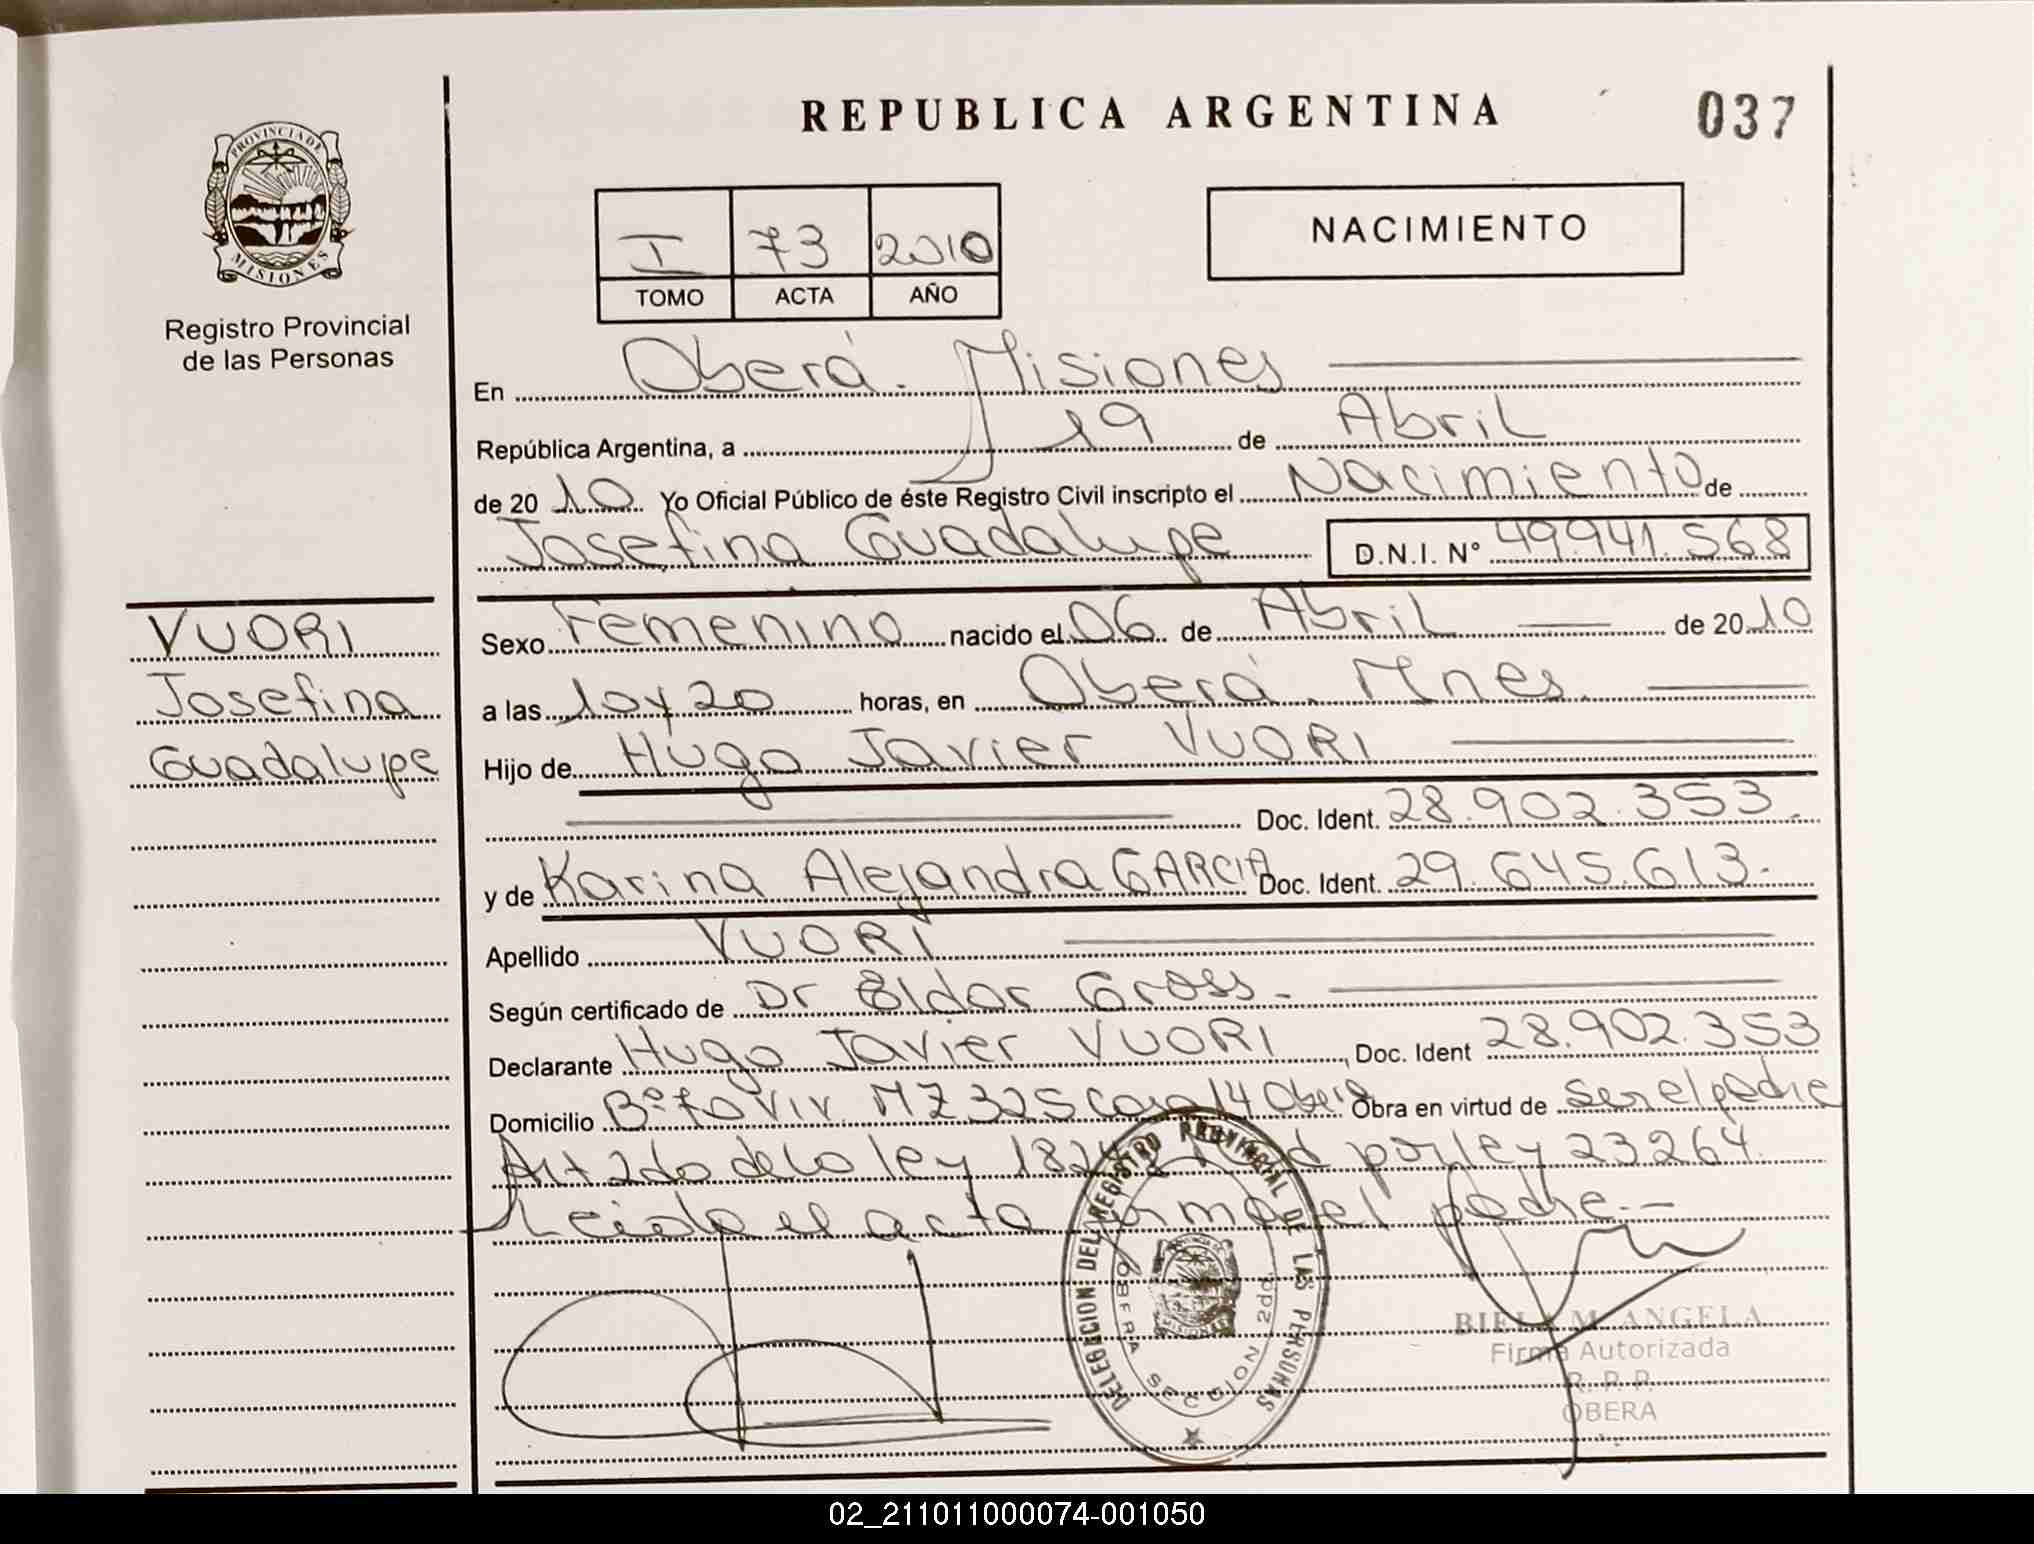 REPUBLICA ARGENTINA
037
PROVINCIA DE
MISIONES
Registro Provincial
de las Personas
I 73 2010
TOMO ACTA AÑO
NACIMIENTO
En Oberá. Misiones
República Argentina, a 19 de Abril
de 2010 Yo Oficial Público de éste Registro Civil inscripto el Nacimiento de
Josefina Guadalupe D.N.I. N° 49.941.568
VUORI
Josefina
Guadalupe
Sexo Femenino nacido el 06 de Abril de 2010
a las 10 y 20 horas, en Oberá. Mnes.
Hijo de Hugo Javier VUORI
Doc. Ident. 28.902.353.
y de Karina Alejandra GARCIA Doc. Ident. 29.645.613.-
Apellido VUORI
Según certificado de Dr Eldor Gross.-
Declarante Hugo Javier VUORI, Doc. Ident 28.902.353
Domicilio B° 40 Viv. MZ 325 Casa 14 Oberá Obra en virtud de ser el padre
Art 2do de la ley por ley 23264.
Leida el acta firma el padre.-
DELEGACION DEL REGISTRO PROVINCIAL DE LAS PERSONAS
OBERA SECCION 2da.
PROVINCIA DE
MISIONES
BIELA M. ANGELA
Firma Autorizada
R. P. P.
OBERA
02_211011000074-001050